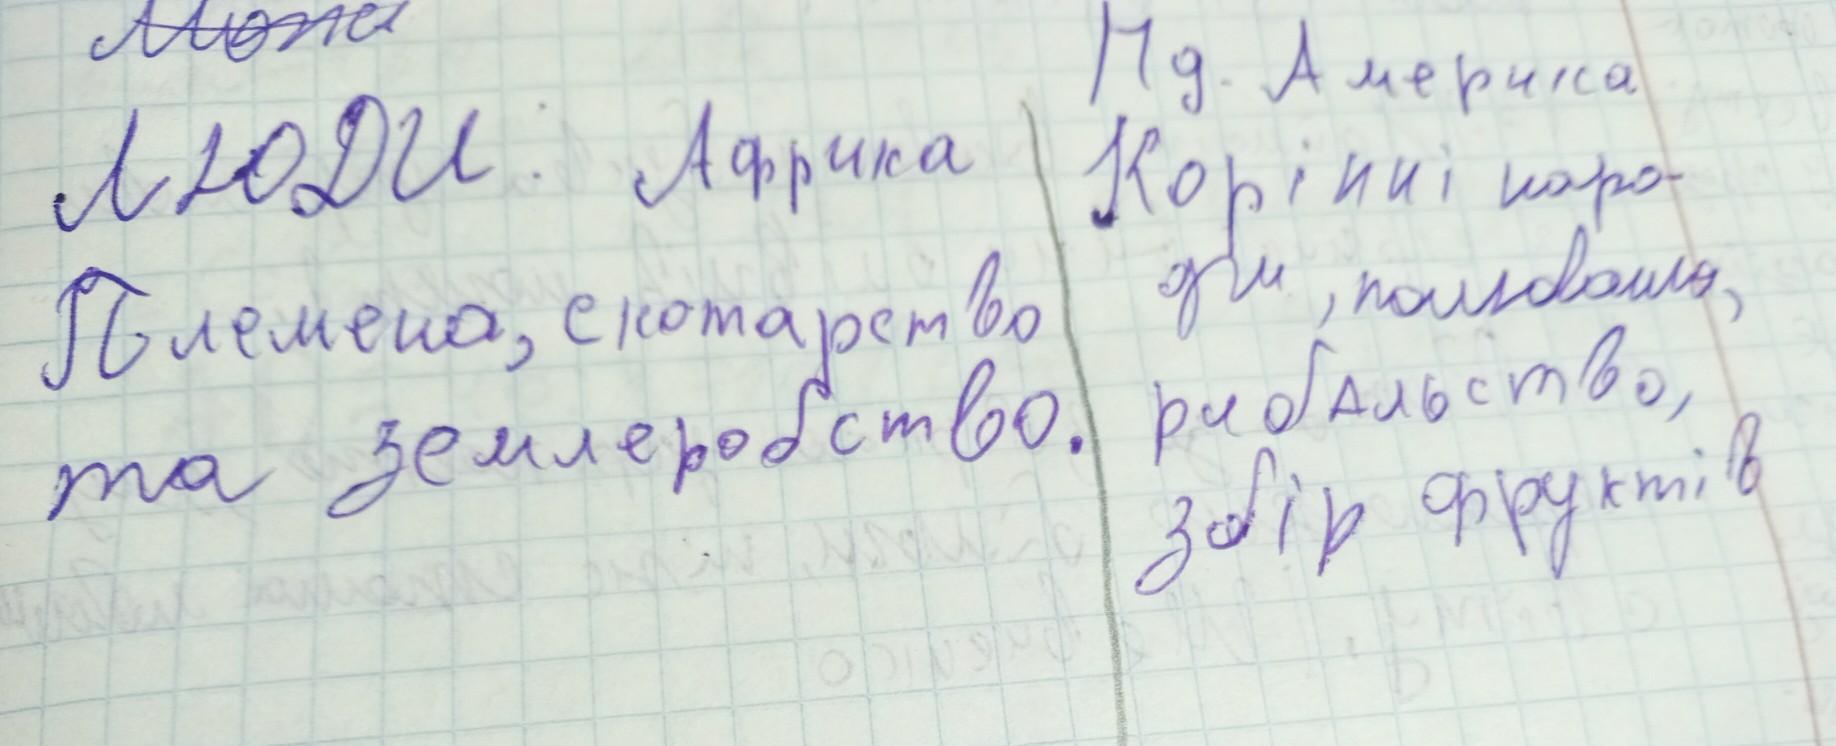 ЛЮДИ: Африка
Племена, скотарство
та землеробство.
Пд. Америка
Корінні наро-
ди, полювання,
рибальство,
збір фруктів